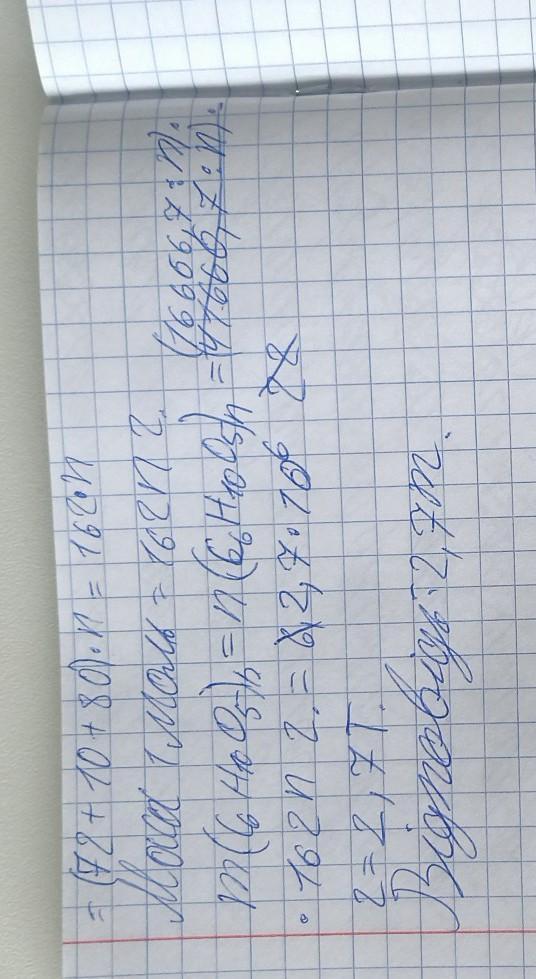 = (72 + 10 + 80)·n = 162·n
Маса 1 моль = 162n г.
m(C6H10O5)n = n(C6H10O5)n = (16666,7 : n)·
· 162n г. = 2,7 · 10^6 г
= 2,7 т.
Відповідь: 2,7 т.